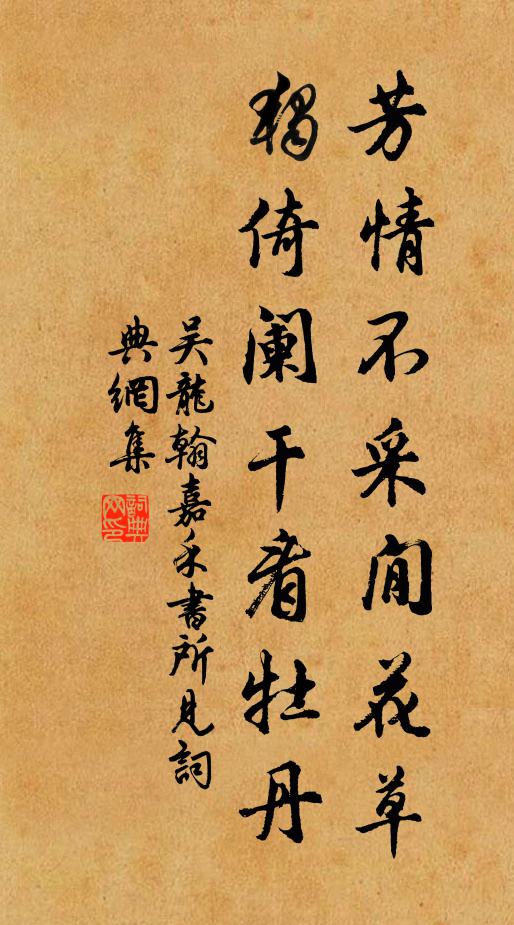 芳情不采閒花草
獨倚闌干看牡丹
吳龍翰嘉禾書所見詞
典網集
詞典
网印